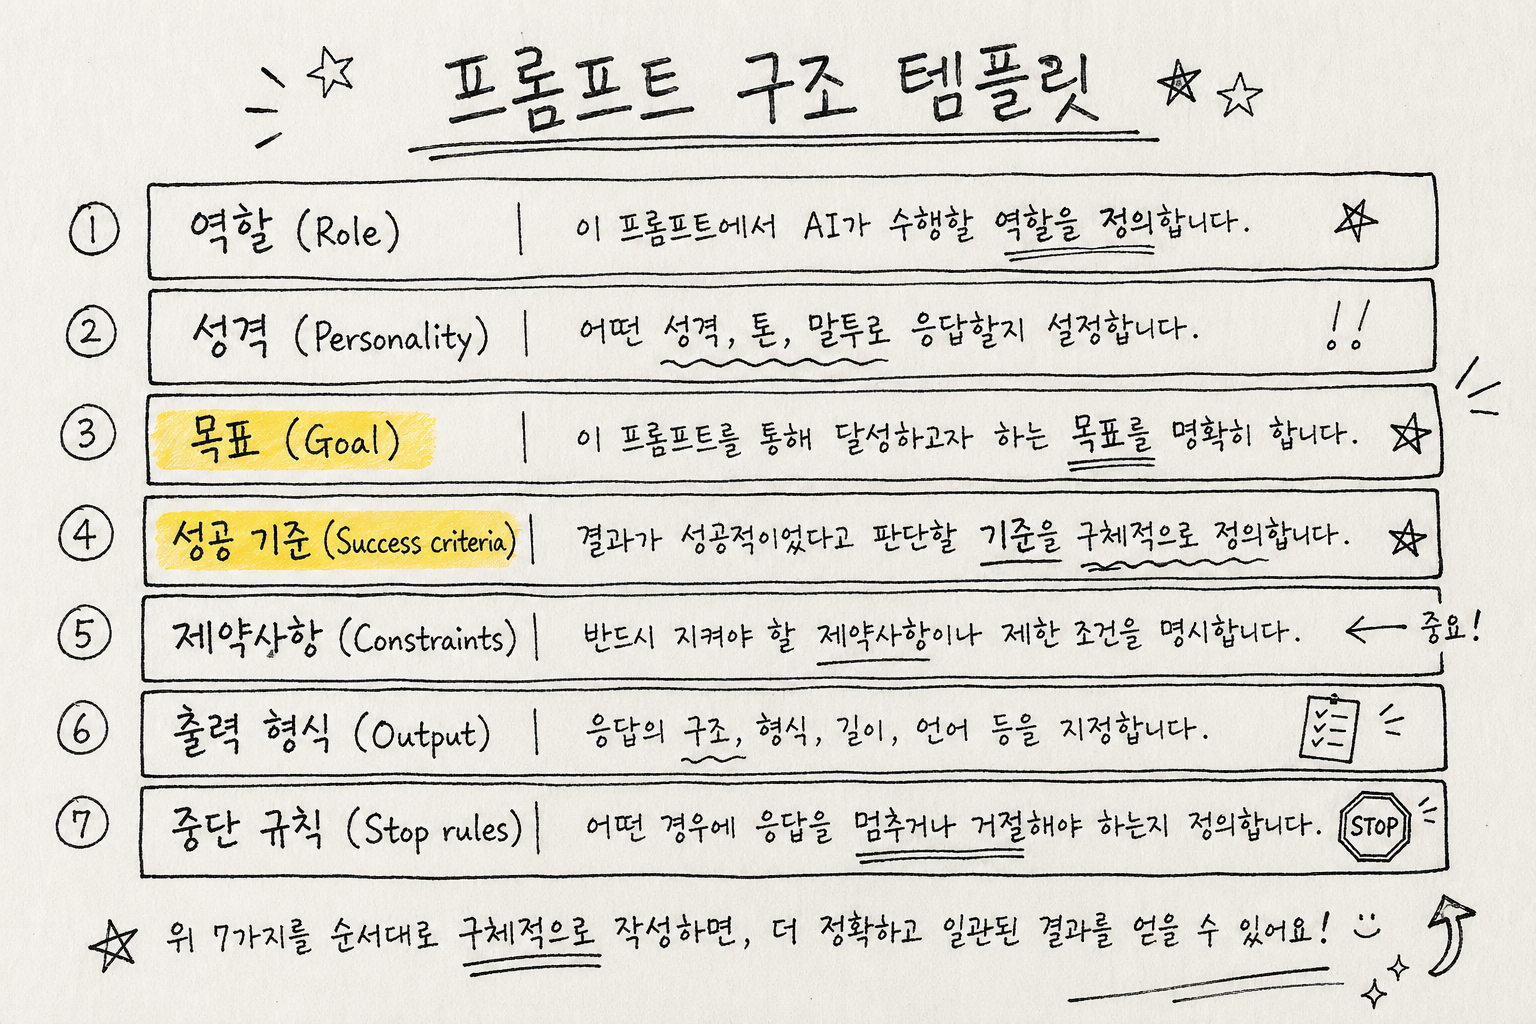 프롬프트 구조 템플릿
① 역할 (Role) | 이 프롬프트에서 AI가 수행할 역할을 정의합니다.
② 성격 (Personality) | 어떤 성격, 톤, 말투로 응답할지 설정합니다. !!
③ 목표 (Goal) | 이 프롬프트를 통해 달성하고자 하는 목표를 명확히 합니다.
④ 성공 기준 (Success criteria) | 결과가 성공적이었다고 판단할 기준을 구체적으로 정의합니다.
⑤ 제약사항 (Constraints) | 반드시 지켜야 할 제약사항이나 제한 조건을 명시합니다. ← 중요!
⑥ 출력 형식 (Output) | 응답의 구조, 형식, 길이, 언어 등을 지정합니다.
⑦ 중단 규칙 (Stop rules) | 어떤 경우에 응답을 멈추거나 거절해야 하는지 정의합니다. STOP
위 7가지를 순서대로 구체적으로 작성하면, 더 정확하고 일관된 결과를 얻을 수 있어요!